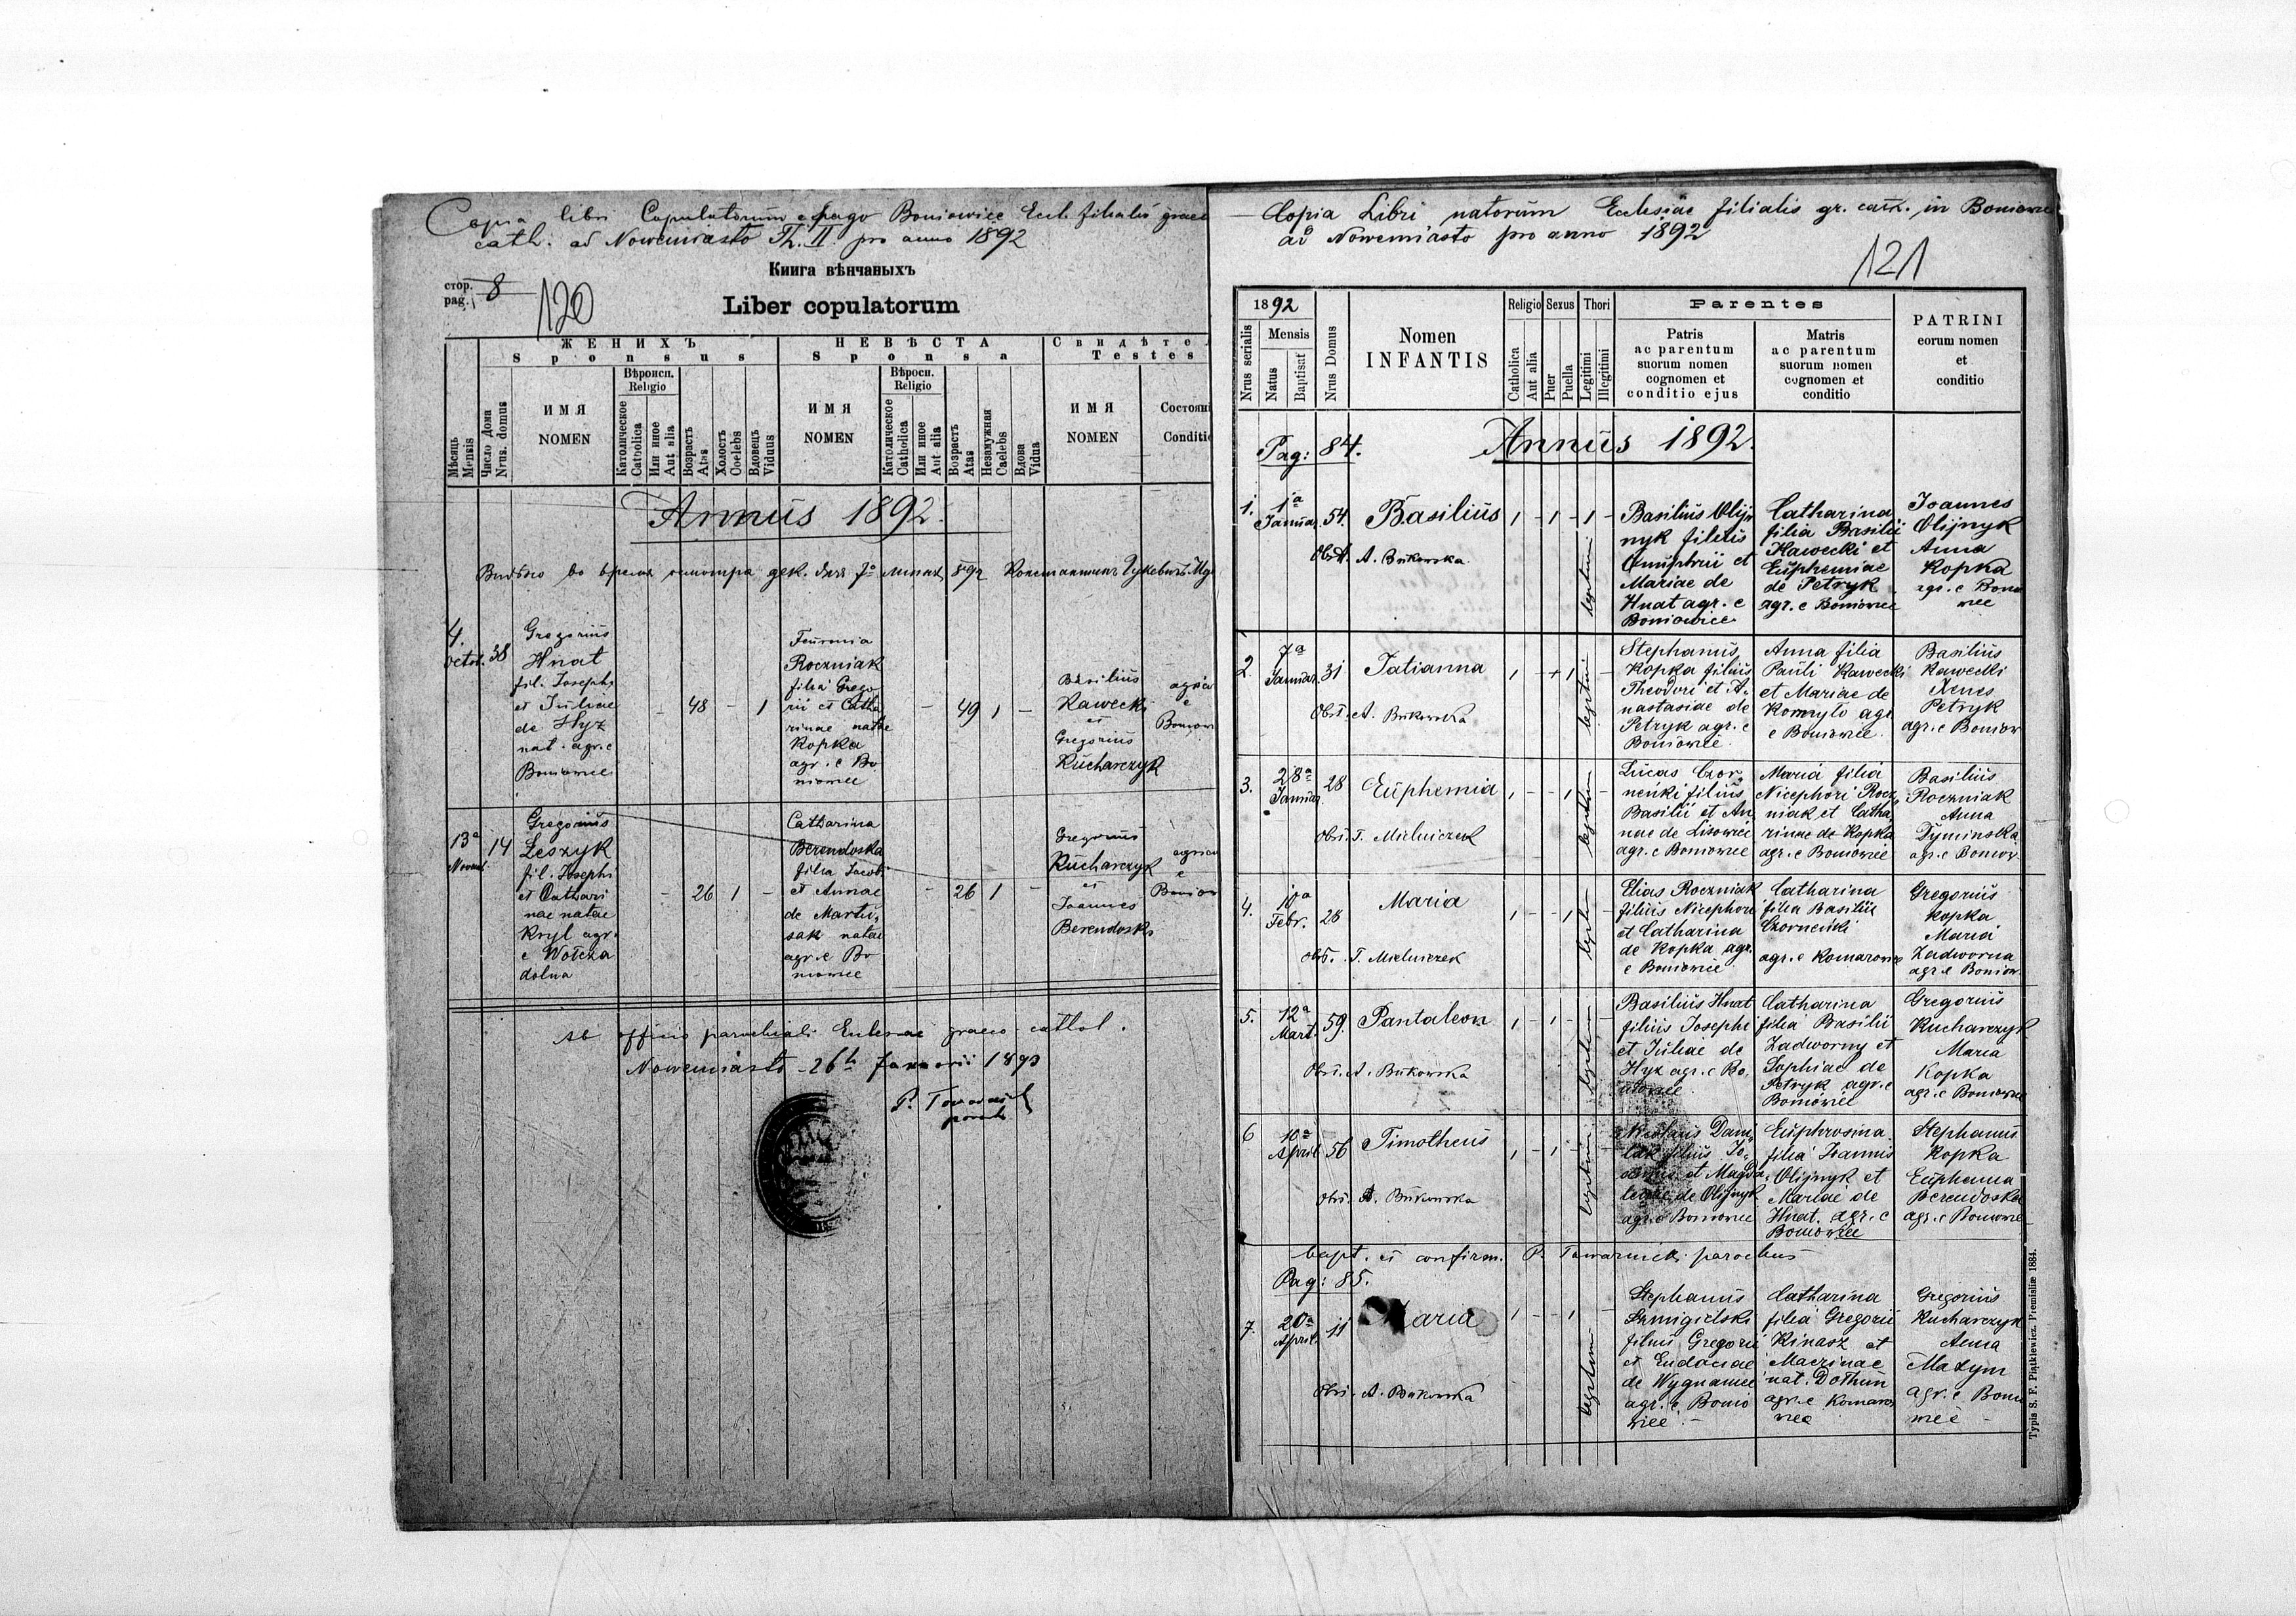 Copia libri Copulatorum e pago Boniowice Eccl. filialis graec
cath. ad Nowemiasto Th. II. pro anno 1892
Книга вѣнчаныхъ
стор.
pag. 8
120
Liber copulatorum
Мѣсяць
Mensis
Число Дома
Nrus. domus
ЖЕНИХЪ
Sponsus
ИМЯ
NOMEN
Вѣроисп.
Religio
Католическое
Catholica
Или иное
Aut alia
Возрастъ
Atas
Холостъ
Coelebs
Вдовецъ
Viduus
НЕВѢСТА
Sponsa
ИМЯ
NOMEN
Вѣроисп.
Religio
Католическое
Catholica
Или иное
Aut alia
Возрастъ
Atas
Незамужная
Caelebs
Вдова
Vidua
Свидѣте
Testes
ИМЯ
NOMEN
Состоян
Conditi
Annus 1892.
4.
Octob.
38
Gregorius
Hnat
fil. Josephi
et Juliae
de Hyz
nat. agr. e
Boniowice
- 48 - 1
Feuronia
Roczniak
filia Grego
rii et Catha
rinae natae
Kopka
agr. e Bo
niowice
- 49 1 -
Basilius
Kawecki
et
Gregorius
Kucharczyk
agrico
e
Boniow
13a
Novem.
14
Gregorius
Leszyk
fil. Josephi
et Cathari
nae natae
Kryl agr.
e Wolcza
dolna
- 26 1 -
Catharina
Berendoska
filia Jacobi
et Annae
de Martu,
sak natae
agr. e Bo
niowice
- 26 1 -
Gregorius
Kucharczyk
et
Joannes
Berendoski
agrico
e
Boniow
Ab officio parochiali Ecclesiae graeco-cathol.
Nowemiasto 26th Januarii 1893
P. Towarnicki
paroch
Copia Libri natorum Ecclesiae filialis gr. cath. in Boniowice
ad Nowemiasto pro anno 1892
121
1892
Nrus serialis
Mensis
Natus
Baptisat
Nrus Domus
Nomen
INFANTIS
Religio
Catholica
Aut alia
Sexus
Puer
Puella
Thori
Legitimi
Illegitimi
Parentes
Patris
ac parentum
suorum nomen
cognomen et
conditio ejus
Matris
ac parentum
suorum nomen
cognomen et
conditio
PATRINI
eorum nomen
et
conditio
Pag: 84.
Annus 1892.
1.
1a
Januar.
54.
Basilius
Obst. A. Bukowska
1 - 1 - 1 -
legitimi
Basilius Olij
nyk filius
Onuphrii et
Mariae de
Hnat agr. e
Boniowice
Catharina
filia Basilii
Kawecki et
Euphemiae
de Petryk
agr. e Boniowice
Joannes
Olijnyk
Anna
Kopka
agr. e Bonio
wice
2.
7a
Januar.
31
Tatianna
Obst. A. Bukowska
legitimi
Stephanus
Kopka filius
Theodori et A,
nastasiae de
Petryk agr. e
Boniowice
Anna filia
Pauli Kawecki
et Mariae de
Kormyto agr.
e Boniowice
Basilius
Kawecki
Xenes
Petryk
agr. e Boniow
3.
28a
Januar.
28
Euphemia
Obst. T. Mielniczek
1 - - 1 -
legitimi
Lucas Czor,
nenki filius
Basilii et An
nae de Lisowice
agr. e Boniowice
Maria filia
Nicephori Rocz,
niak et Catha,
rinae de Kopka
agr. e Boniowice
Basilius
Roczniak
Anna
Dyminska
agr. e Boniow.
4.
10a
Febr.
28
Maria
Obst. T. Mielniczek
1 - - 1 -
legitimi
Elias Roczniak
filius Nicephori
et Catharina
de Kopka agr.
e Boniowice
Catharina
filia Basilii
Czornenki
agr. e Komarowice
Gregorius
Kopka
Maria
Zadworna
agr. e Boniow.
5.
12a
Mart
59
Pantaleon
Obst. A. Bukowska
1 - 1 - -
legitimi
Basilius Hnat
filius Josephi
et Juliae de
Hyz agr. e Bo,
niowice
Catharina
filia Basilii
Zadworny et
Sophiae de
Petryk agr. e
Boniowice
Gregorius
Kucharczyk
Maria
Kopka
agr. e Boniowice
6
10a
April
56
Timotheus
Obst. A. Bukowska
1 - 1 - -
legitimi
Nicolaus Dani,
lak filius Jo,
et Magda,
lenae de Olijnyk
agr. e Boniowice
Euphrosina
filia Joannis
Olijnyk et
Mariae de
Hnat. agr. e
Boniowice
Stephanus
Kopka
Euphemia
Berendoska
agr. e Boniowice
bapt. et confirm. P. Towarnicki parochus
Pag: 85.
7.
20a
April
11
Maria
Obst. A. Bukowska
1 - - 1 -
legitimi
Stephanus
Szmigielski
filius Gregorii
et Eudociae
de Wygnaniec
agr. e Bonio
wice -
Catharina
filia Gregorii
Kinasz et
Macrinae
nat. Dothun
agr. e Komaro
wice
Gregorius
Kucharczyk
Anna
Maxym
agr. e Bonio
wice -
Typis S. F. Piątkiewicz. Premisliæ 1884.